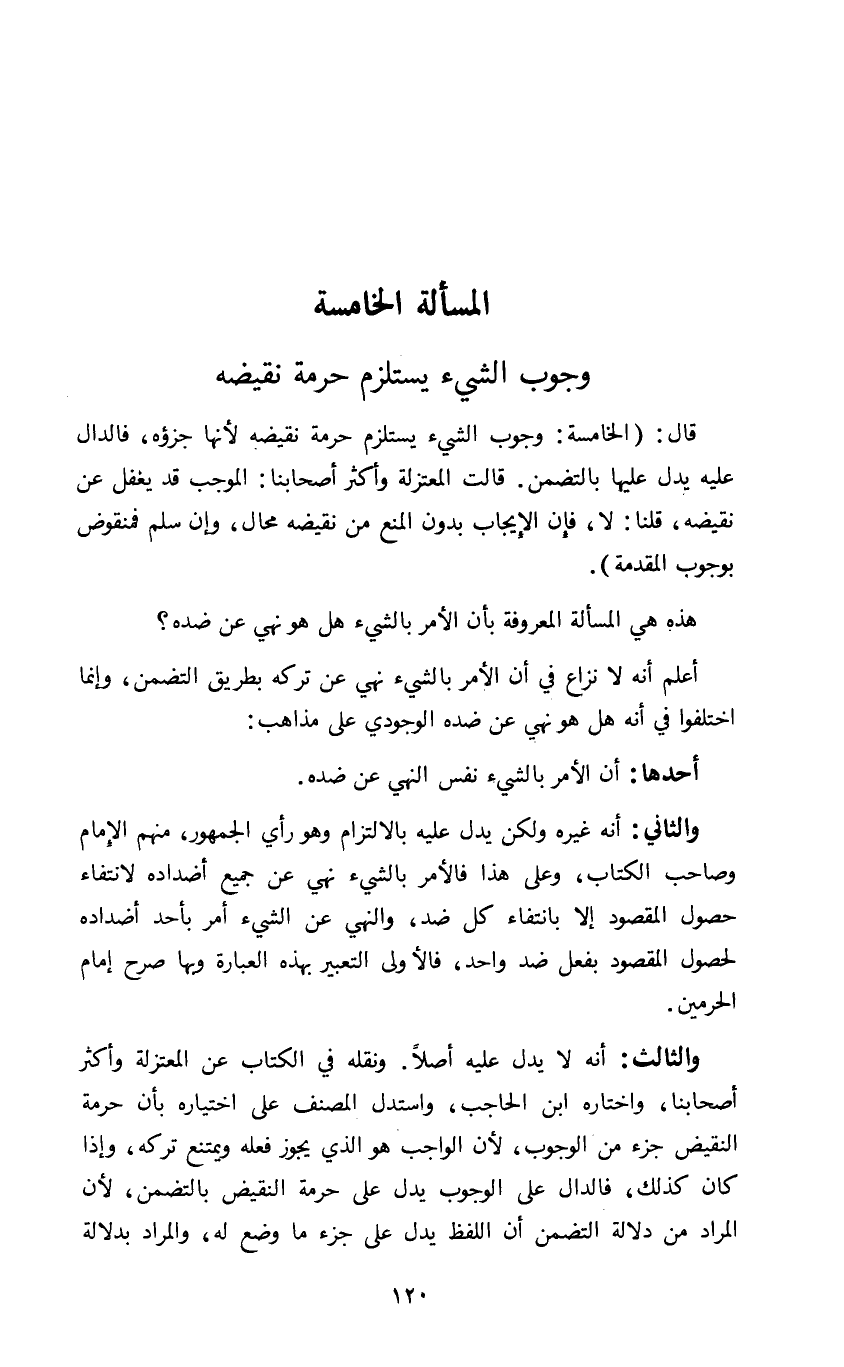 المسألة الخامسة
وجوب الشيء يستلزم حرمة نقيضه
قال: (الخامسة: وجوب الشيء يستلزم حرمة نقيضه لأنها جزؤه، فالدال
عليه يدل عليها بالتضمن. قالت المعتزلة وأكثر أصحابنا: الموجب قد يغفل عن
نقيضه، قلنا: لا، فإن الإيجاب بدون المنع من نقيضه محال، وإن سلم فمنقوض
بوجوب المقدمة).
هذه هي المسألة المعروفة بأن الأمر بالشيء هل هو نهي عن ضده؟
أعلم أنه لا نزاع في أن الأمر بالشيء نهي عن تركه بطريق التضمن، وإنما
اختلفوا في أنه هل هو نهي عن ضده الوجودي على مذاهب:
أحدها: أن الأمر بالشيء نفس النهي عن ضده.
والثاني: أنه غيره ولكن يدل عليه بالالتزام وهو رأي الجمهور، منهم الإمام
وصاحب الكتاب، وعلى هذا فالأمر بالشيء نهي عن جميع أضداده لانتفاء
حصول المقصود إلا بانتفاء كل ضد، والنهي عن الشيء أمر بأحد أضداده
لحصول المقصود بفعل ضد واحد، فالأولى التعبير بهذه العبارة وبها صرح إمام
الحرمين.
والثالث: أنه لا يدل عليه أصلاً. ونقله في الكتاب عن المعتزلة وأكثر
أصحابنا، واختاره ابن الحاجب، واستدل المصنف على اختياره بأن حرمة
النقيض جزء من الوجوب، لأن الواجب هو الذي يجوز فعله ويمتنع تركه، وإذا
كان كذلك، فالدال على الوجوب يدل على حرمة النقيض بالتضمن، لأن
المراد من دلالة التضمن أن اللفظ يدل على جزء ما وضع له، والمراد بدلالة
١٢٠